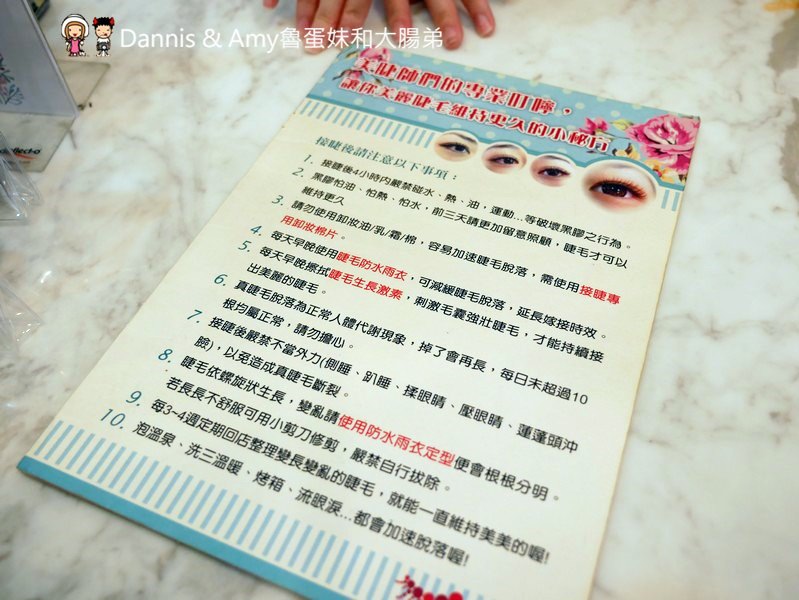 Dannis & Amy魯蛋妹和大腸弟
美睫師們的專業叮嚀，
讓你美麗睫毛維持更久的小秘方
接睫後請注意以下事項：
1. 接睫後4小時內嚴禁碰水、熱、油，運動...等破壞黑膠之行為。
2. 黑膠怕油、怕熱、怕水，前三天請更加留意照顧，睫毛才可以
維持更久
3. 請勿使用卸妝油/乳/霜/棉，容易加速睫毛脫落，需使用接睫專
用卸妝棉片。
4. 每天早晚使用睫毛防水雨衣，可減緩睫毛脫落，延長嫁接時效。
5. 每天早晚擦拭睫毛生長激素，刺激毛囊強壯睫毛，才能持續接
出美麗的睫毛。
6. 真睫毛脫落為正常人體代謝現象，掉了會再長，每日未超過10
根均屬正常，請勿擔心。
7. 接睫後嚴禁不當外力(側睡、趴睡、揉眼睛、壓眼睛、蓮蓬頭沖
臉)，以免造成真睫毛斷裂。
8. 睫毛依螺旋狀生長，變亂請使用防水雨衣定型便會根根分明。
若長長不舒服可用小剪刀修剪，嚴禁自行拔除。
9. 每3~4週定期回店整理變長變亂的睫毛，就能一直維持美美的喔!
10. 泡溫泉、洗三溫暖、烤箱、流眼淚...都會加速脫落喔!